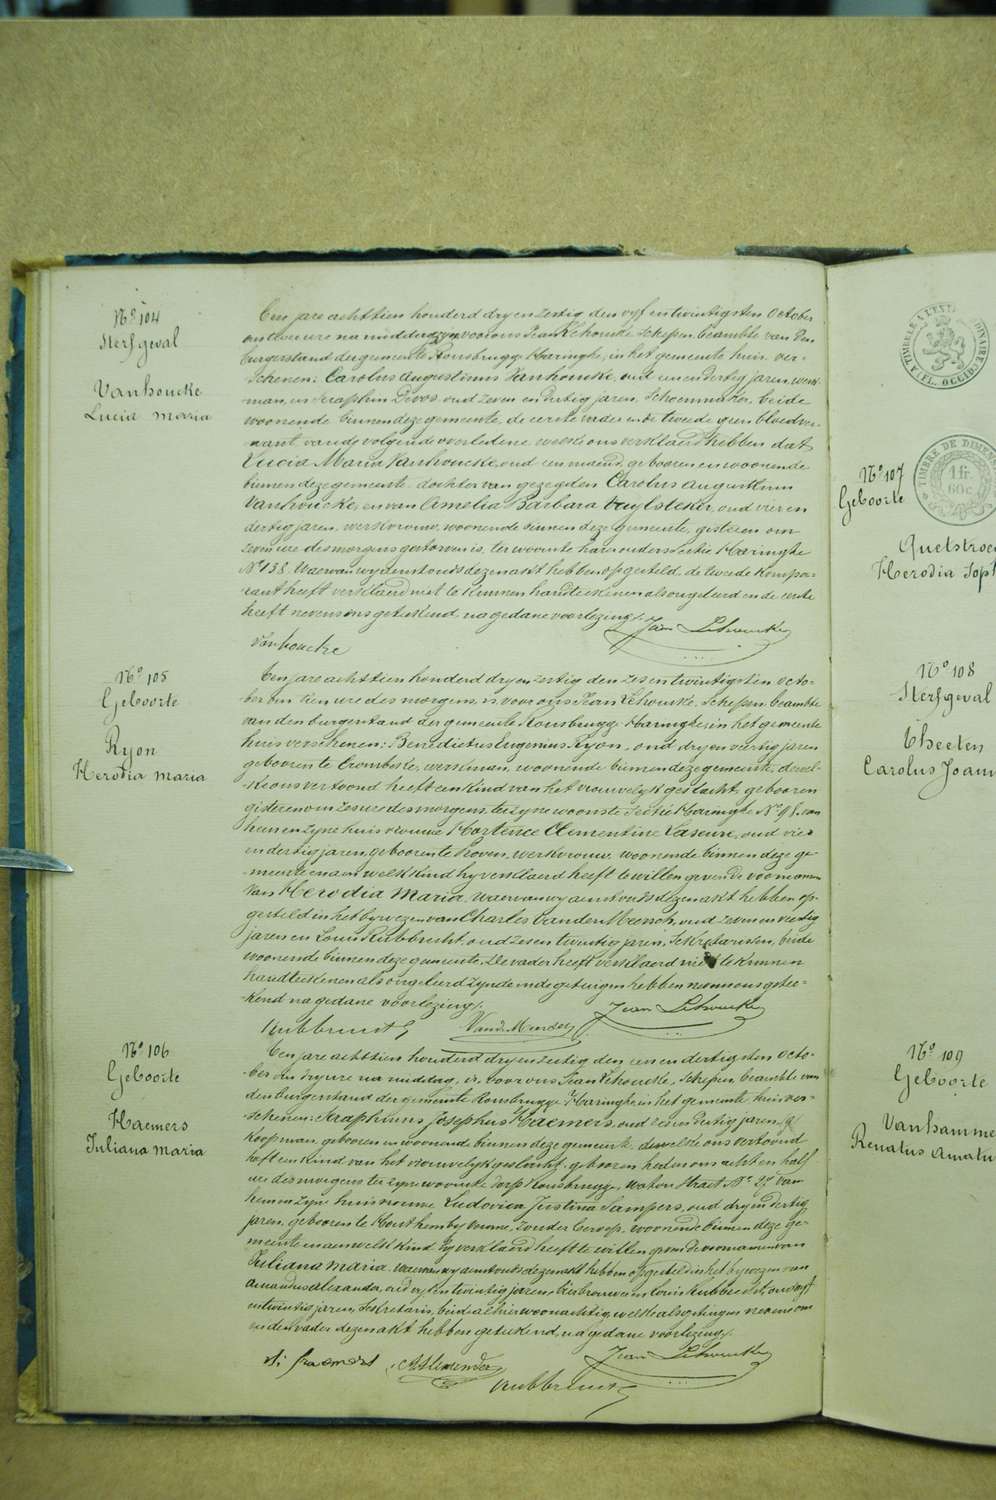 N° 104
Sterfgeval
Vanhoucke
Lucia Maria
Ten jare achttien honderd dry en zestig den vyf en twintigsten October
om twee ure na middag zyn voor ons Jean Lehoucke Schepen beambte van den
burgerstand der gemeente Rousbrugge Haringhe, in het gemeente huis ver-
schenen: Carolus Augustinus Vanhoucke, oud een en dertig jaren, werk-
man, en Seraphin Devos oud zeven en dertig jaren, Schoenmaker, beide
woonende binnen deze gemeente, de eerste vader en de tweede geen bloedver-
want van de volgende overledene welke ons verklaard hebben dat
Lucia Maria Vanhoucke, oud een maend, geboren en woonende
binnen deze gemeente, dochter van gezegden Carolus Augustinus
Vanhoucke, en van Amelia Barbara Vuylsteker, oud vier en
dertig jaren, werkvrouw, woonende binnen deze gemeente, gisteren om
zeven ure des morgens gestorven is, ter woonste harer ouders sectie Haringhe
N° 138. Waervan wy ambtshalve deze akt hebben opgesteld, de tweede kompa-
rant heeft verklaard niet te kunnen handteekenen als ongeleerd en de eerste
heeft nevens ons geteekend, na gedane voorlezing.
Jean Lehoucke
Vanhoucke
N° 105
Geboorte
Ryon
Herodia Maria
Ten jare achttien honderd dry en zestig den zes en twintigsten octo-
ber om tien ure des morgens, is voor ons Jean Lehoucke, Schepen, beambte
van den burgerstand der gemeente Rousbrugge Haringhe, in het gemeente
huis verschenen: Benedictus Eugenius Ryon, oud dry en veertig jaren
geboren te Crombeke, werkman, woonende binnen deze gemeente, dewel-
ke ons vertoond heeft een kind van het vrouwelyk geslacht, geboren
gisteren om zes ure des morgens, te zyne woonste Sectie Haringhe N° 98. van
hem en zyne huisvrouwe Hortence Clementine Laseure, oud vier
en dertig jaren, geboren te Hoven, werkvrouw, woonende binnen deze ge-
meente en aen welk kind hy verklaard heeft te willen geven de voornamen
van Herodia Maria, waervan wy deze akt hebben op-
gesteld in het bywezen van Charles Vanden Meersch, oud zeven en veertig
jaren en Louis Rubbrecht, oud zes en twintig jaren, Sekretarissen, beide
woonende binnen deze gemeente. De vader heeft verklaard niet te kunnen
handteekenen als ongeleerd zynde en de getuigen hebben nevens ons getee-
kend na gedane voorlezing.
Jean Lehoucke
N° 106
Geboorte
Haemers
Juliana Maria
Ten jare achttien honderd dry en zestig den een en dertigsten octo-
ber om dry ure na middag, is voor ons Jean Lehoucke, Schepen, beambte van
den burgerstand der gemeente Rousbrugge Haringhe in het gemeente huis ver-
schenen: Seraphinus Josephus Haemers, oud zes en dertig jaren
Koopman, geboren en woonende binnen deze gemeente, dewelke ons vertoond
heeft een kind van het vrouwelyk geslacht, geboren heden om acht en half
ure des morgens ter zyne woonste dorp Rousbrugge, Watou straet N° 2. van
hem en zyne huisvrouwe Ludovica Justina Sampers, oud dry en dertig
jaren, geboren te Houthem by Veurne, zonder beroep, woonende binnen deze ge-
meente en aen welk kind hy verklaard heeft te willen geven de voornamen van
Juliana Maria, waervan wy deze akt hebben opgesteld in het bywezen van
Amandus Alexander, oud vyf en twintig jaren, bierbrouwer en Louis Rubbrecht, oud zes
en twintig jaren, Sekretaris, beide alhier woonachtig, welke als getuigen nevens ons
en den vader deze akt hebben geteekend, na gedane voorlezing.
Jean Lehoucke
S. J. Haemers
A. Alexander
TIMBRE DE DIMEN
1 fr.
60 c.
N° 107
Geboorte
Quetstroe
Herodia Soph
N° 108
Sterfgeval
Theeten
Carolus Joann
N° 109
Geboorte
Vanhamme
Renatus Amatu